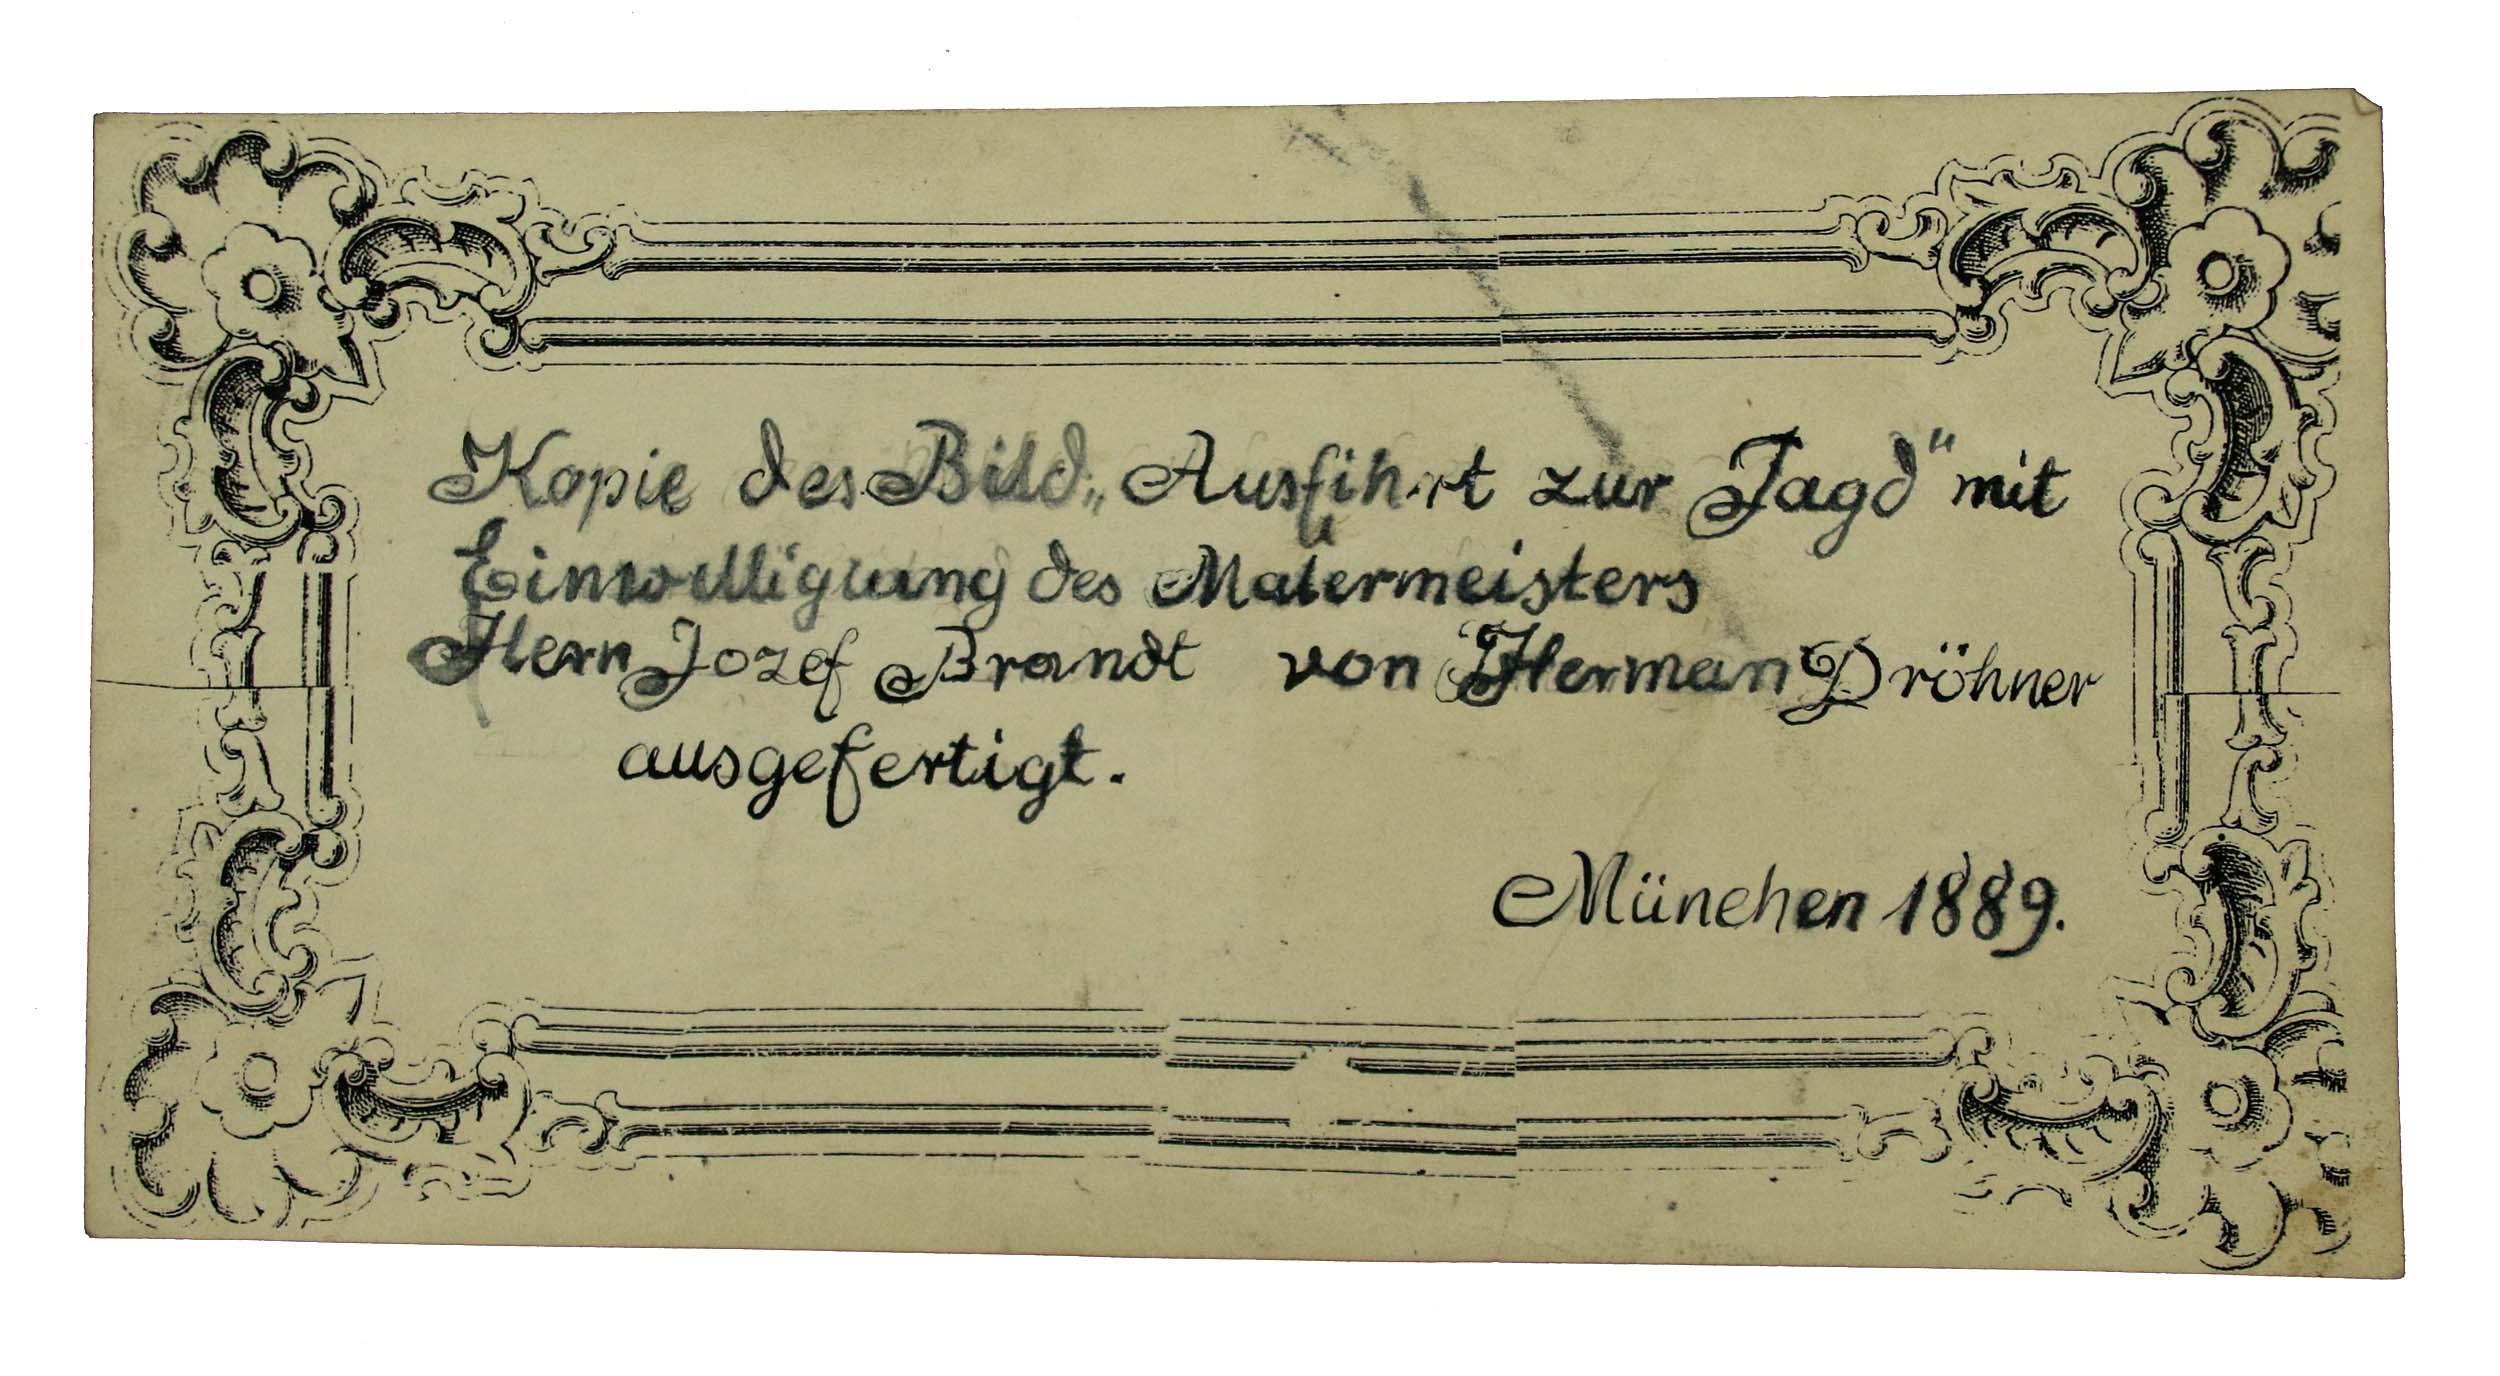 Kopie des Bild „Ausfihrt zur Jagd“ mit
Einwolligung des Malermeisters
Hern Jozef Brandt von Herman Dröhner
ausgefertigt.
München 1889.